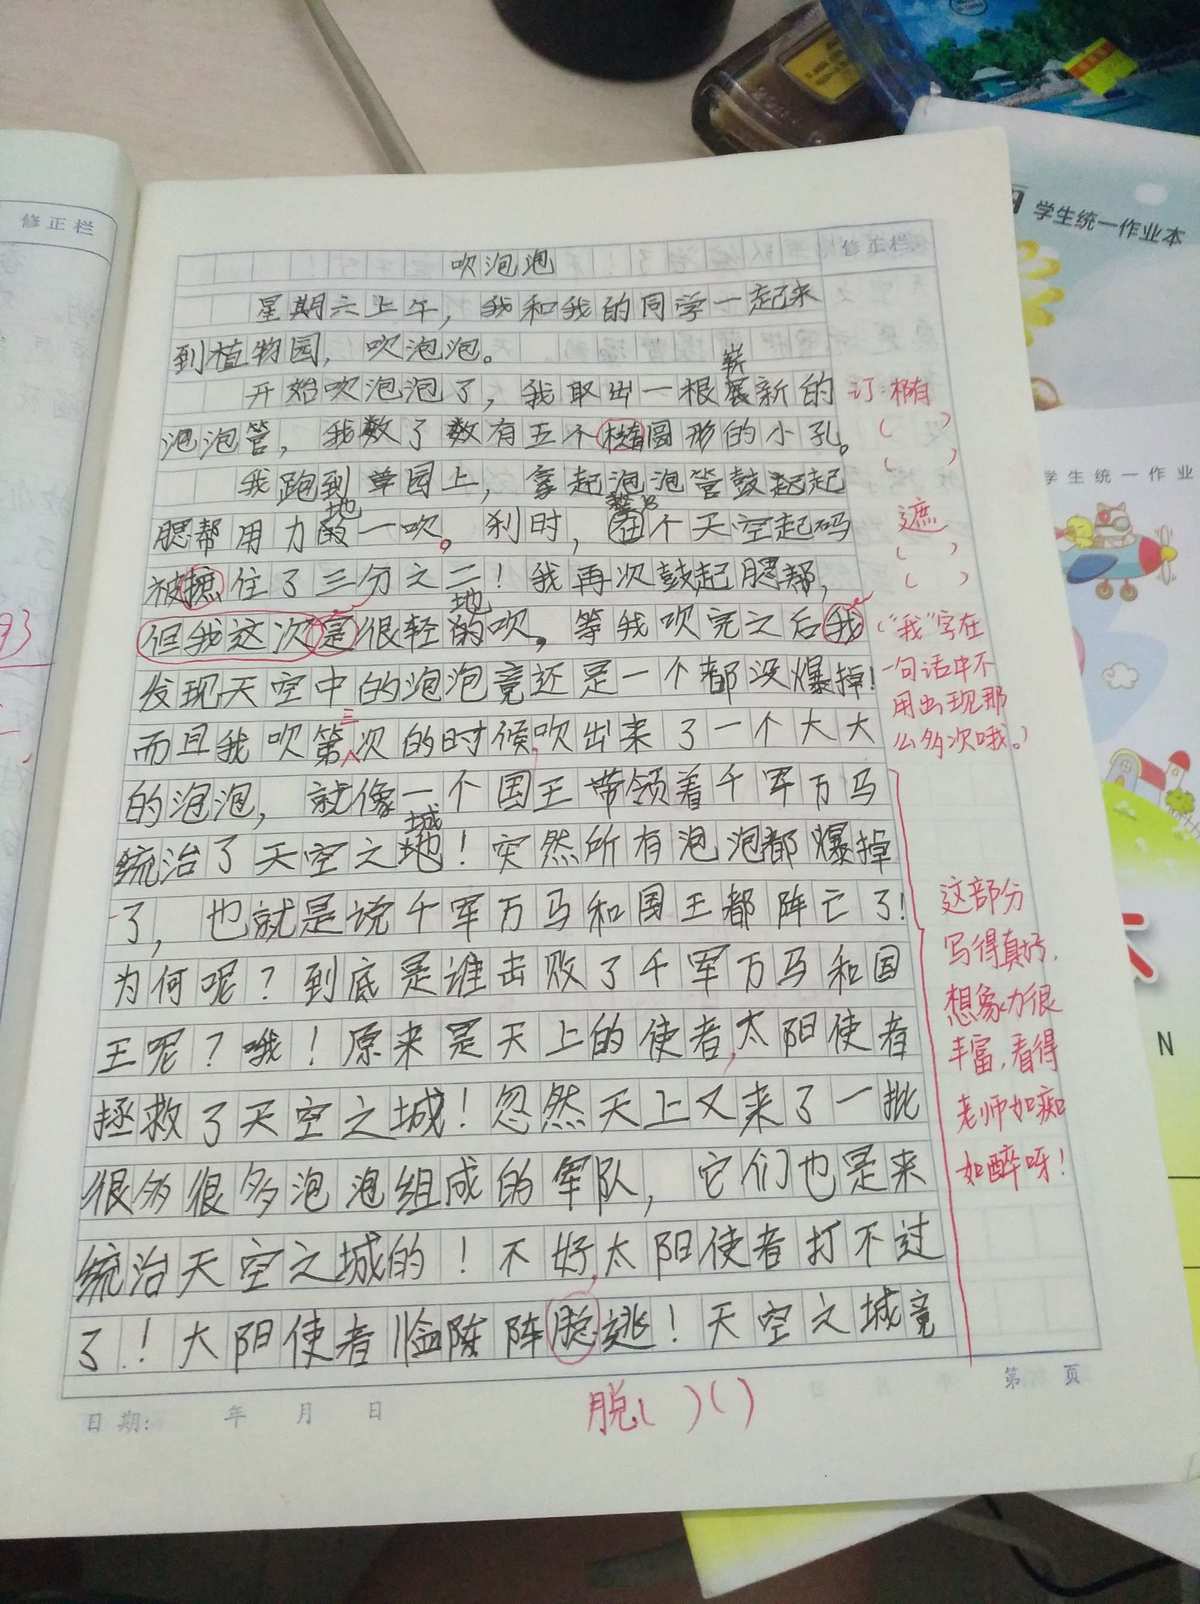 修正栏
学生统一作业本
修正栏
吹泡泡
星期六上午，我和我的同学一起来
到植物园，吹泡泡。
崭
开始吹泡泡了，我取出一根展新的
订:椭有
泡泡管，我数了数有五个椭圆形的小孔。
( )
( )
学生统一作业
我跑到草园上，拿起泡泡管鼓起起
地
腮帮用力的一吹。刹时，在个天空起码
整
遮
( )
被摭住了三分之二！我再次鼓起腮帮，
( )
地
但我这次是很轻的吹，等我吹完之后我
("我"字在
一句话中不
用出现那
么多次哦。)
93
发现天空中的泡泡竟还是一个都没爆掉！
三
而且我吹第次的时候，吹出来了一个大大
的泡泡，就像一个国王带领着千军万马
城
统治了天空之地！突然所有泡泡都爆掉
了，也就是说千军万马和国王都阵亡了！
这部分
写得真好，
想象力很
丰富，看得
老师如痴
如醉呀！
为何呢？到底是谁击败了千军万马和国
王呢？哦！原来是天上的使者，太阳使者
N
拯救了天空之城！忽然天上又来了一批
很多很多泡泡组成的军队，它们也是来
统治天空之城的！不好，太阳使者打不过
了！大阳使者临陈阵脱逃！天空之城竟
脱( )( )
第 页
日期: 年 月 日